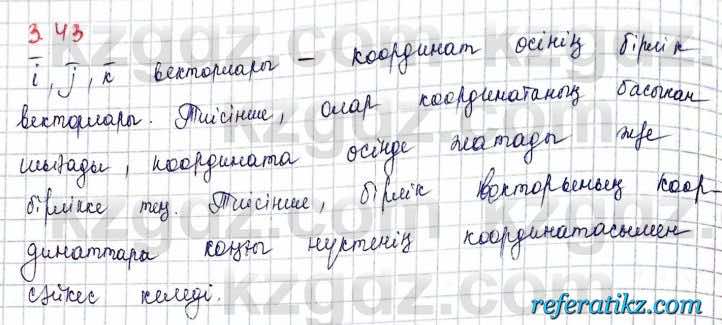 3.43
i̅, j̅, k̅ векторлары – координат осінің бірлік
векторлары. Тиісінше, олар координатаның басынан
шығады, координата осінде жатады және
бірлікке тең. Тиісінше, бірлік векторының коор-
динаттары соңғы нүктенің координатасымен
сәйкес келеді.
kzgdz.com
referatikz.com